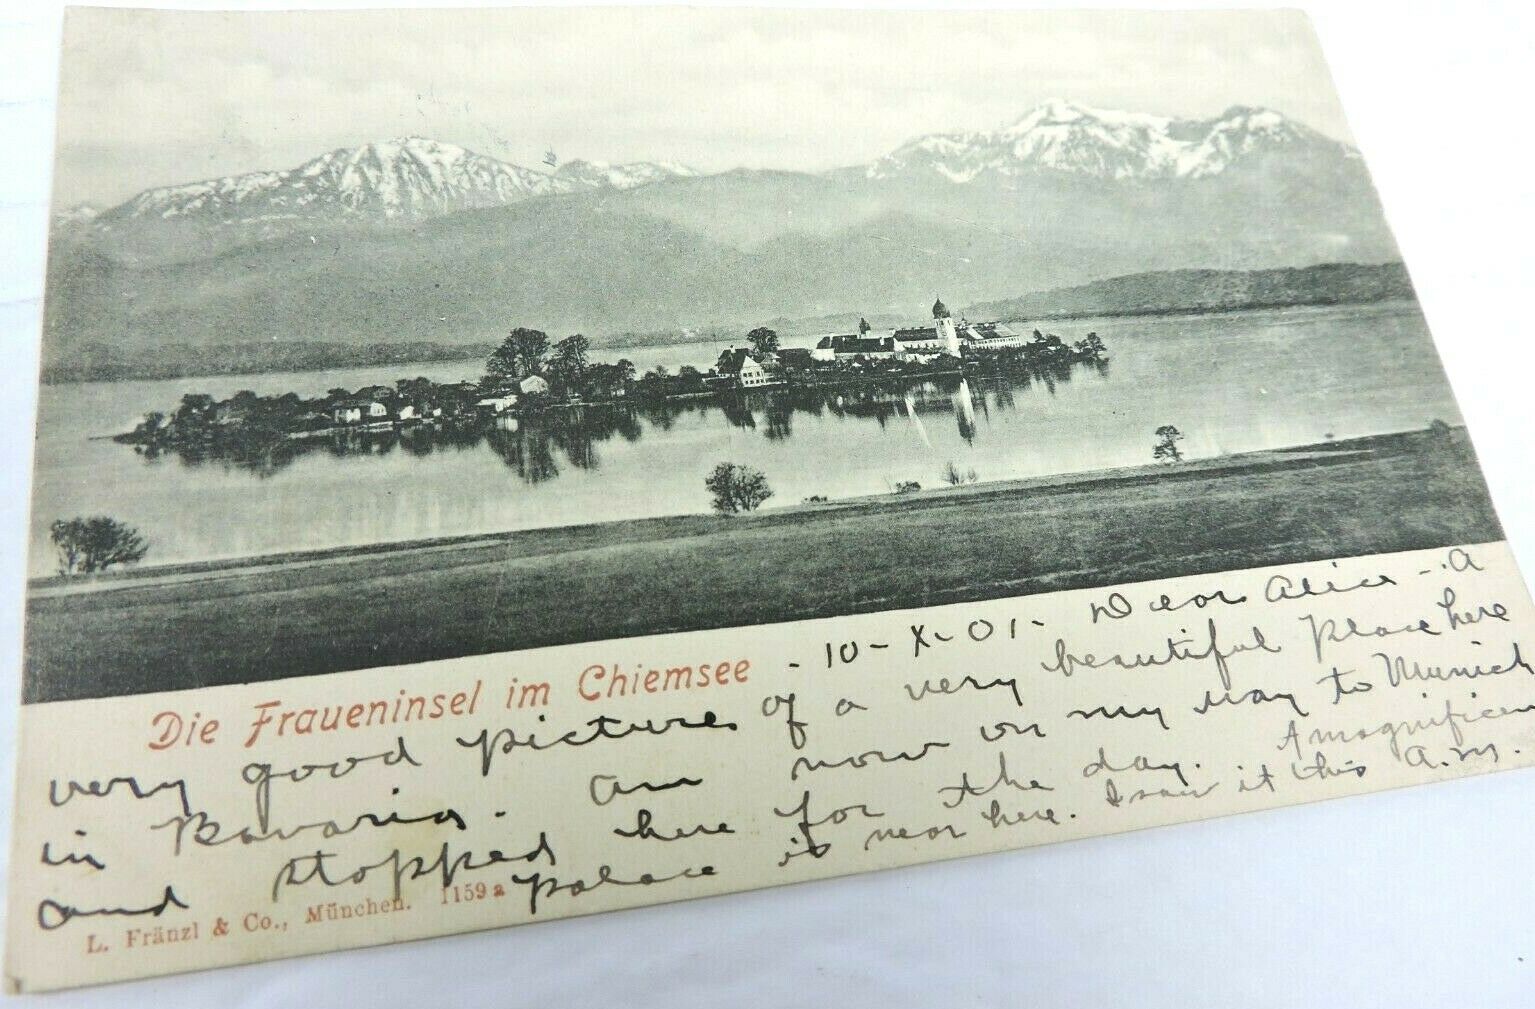 Die Fraueninsel im Chiemsee
- 10 - X - 01 - Dear Alice - A
very good picture of a very beautiful place here
in Bavaria. Am now on my way to Munich
and stopped here for the day. A magnificent
palace is near here. I saw it this A.M.
L. Fränzl & Co., München. 1159 a